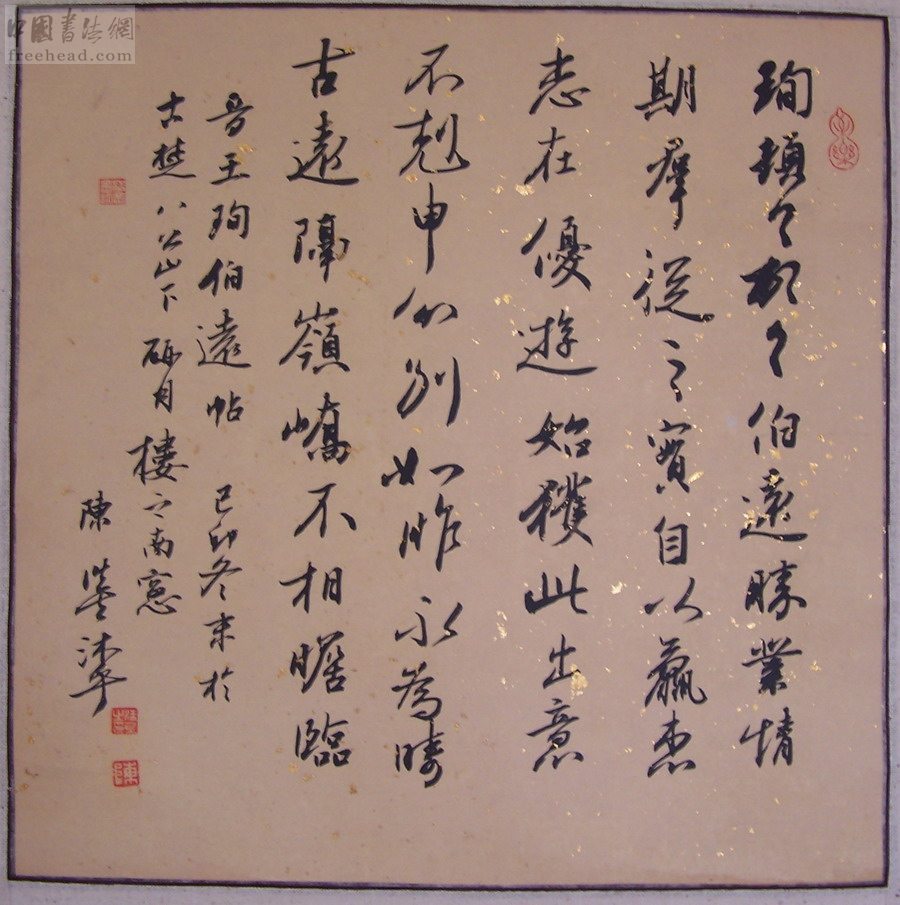 中國書法網
freehead.com
珣頓首頓首伯遠勝業情
期群從之寶自以羸患
志在優遊始獲此出意
不剋申分別如昨永為疇
古遠隔嶺嶠不相瞻臨
晉王珣伯遠帖 己卯冬末於
古楚八公山下月樓之南窓
陳